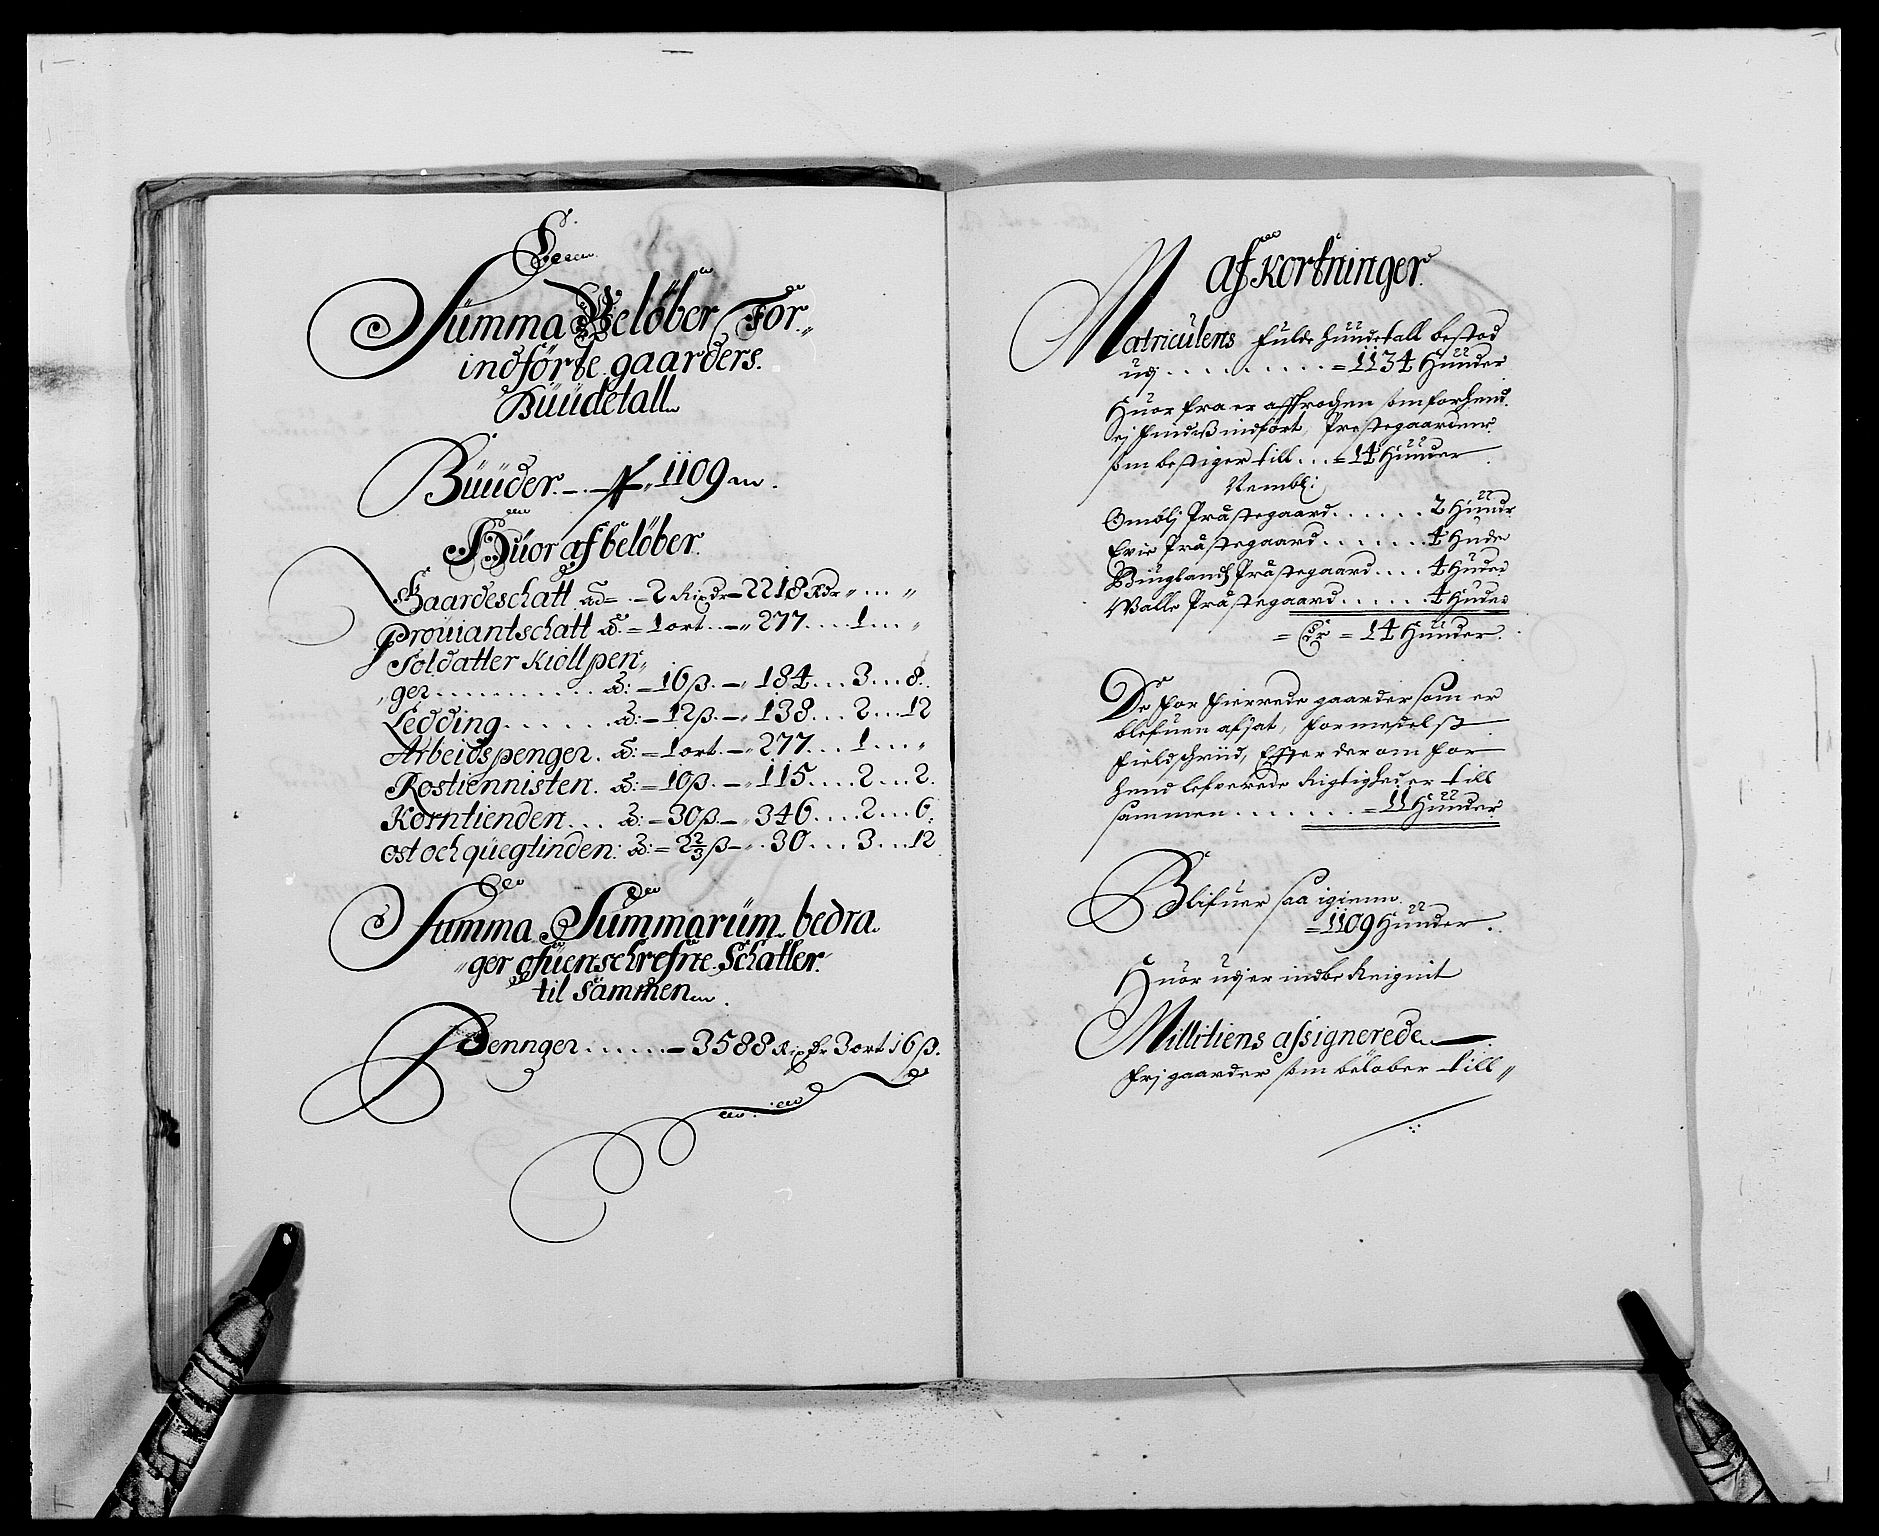 Summa Belöber For
indförte gaarders
Hüüdetall
Hüüder 1109
Hüor af belöber
Gaardeschatt ad 2 Rixdr 2218 Rdr " ... "
Prouiantschatt ad = 1 ort .. 277 .... 1 ... "
Soldatter Kiollpen
ger .......... ad: = 16 ß. 184 ... 3 ... 8.
Ledding ...... ad: = 12 ß. 138 .... 2 ... 12
Arbeidspenger. ad: = 1 ort. 277 ... 1 ... "
Rostiennisten. ad: = 10 ß 115 .... 2 ... 2.
Korntienden ... ad: = 30 ß 346 .... 2 ... 6.
ost och quegtinden: ad: = 2 2/3 ß .. 30 .... 3 ... 12
Summa Summarüm bedra
ger ofuenschrefne Schatter
til sammen
Pennger ...... 3588 Rixdr 3 ort 16 ß.
afkortninger
Matriculens fulde hüüdetall bestod
udj .......... = 1134 Hüüder
Huor fra er affdrogen som forhend
ej findiß indfört, Prestegaarderne
som bestiger till ... = 14 Hüüder
Nembl:
Omblj Præstegaard ...... 2 Hüüdr
Evie Præstegaard ....... 4 Huder
Bÿglands Præstegaard .... 4 Huder
Walle Præstegaard ...... 4 Huder
= Er = 14 Hüüder.
De for fierrede gaarder som er
blefuen afsat, formedelst
fieldschriid, Effter derom for
hend lefuerede Rigtigheder till
sammen ....... = 11 Hüüder
Blifuer saa igienn
= 1109 Hüüder.
Huor udj er indbereignit
Millitiens assignerede
frj gaarder som beløber till